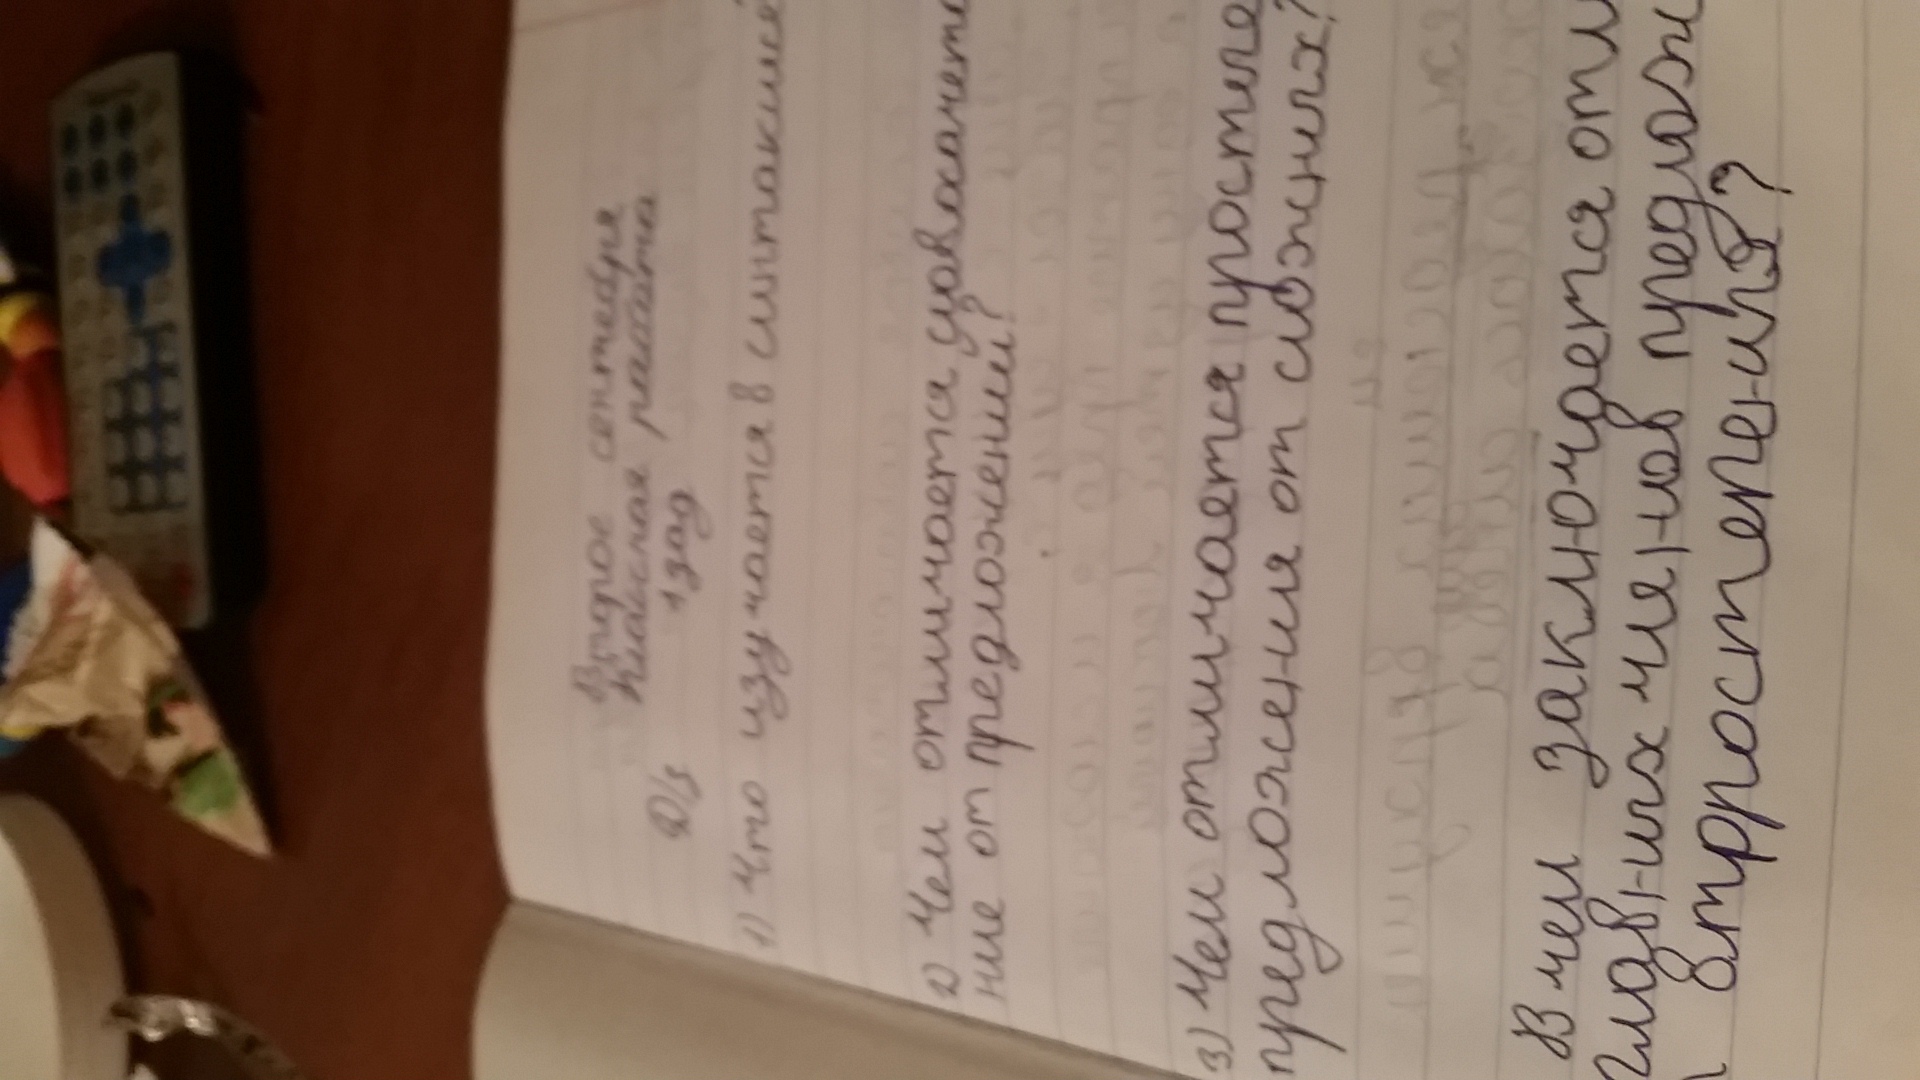 Второе сентября
Классная работа
Д/з 1 зад
1) Что изучается в синтаксисе
2) Чем отличается словосочета
ние от предложении?
3) Чем отличается простые
предложения от сложных?
В чем заключается отли
главных членов предлож
второстепения?